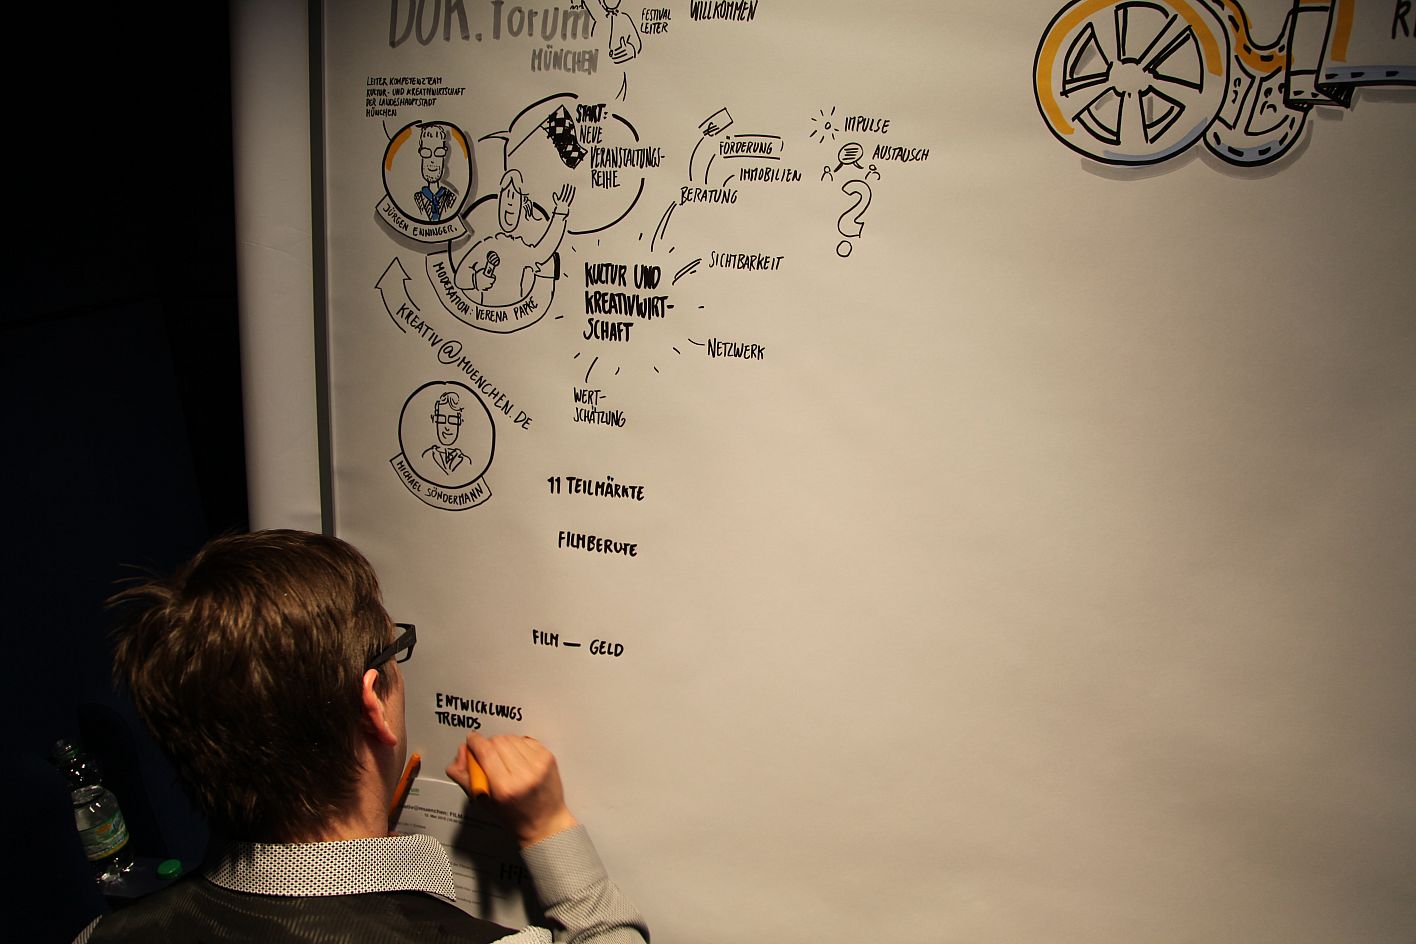 DOK. forum
MÜNCHEN
FESTIVAL
LEITER
WILLKOMMEN
LEITER KOMPETENZTEAM
KULTUR- UND KREATIVWIRTSCHAFT
DER LANDESHAUPTSTADT
MÜNCHEN
JÜRGEN ENNINGER.
START:
NEUE
VERANSTALTUNGS-
REIHE
MODERATION: VERENA PAPKE
€
FÖRDERUNG
IMMOBILIEN
BERATUNG
IMPULSE
AUSTAUSCH
?
KULTUR UND
KREATIVWIRT-
SCHAFT
SICHTBARKEIT
NETZWERK
WERT-
SCHÄTZUNG
KREATIV@MUENCHEN.DE
MICHAEL SÖNDERMANN
11 TEILMÄRKTE
FILMBERUFE
FILM — GELD
ENTWICKLUNGS
TRENDS